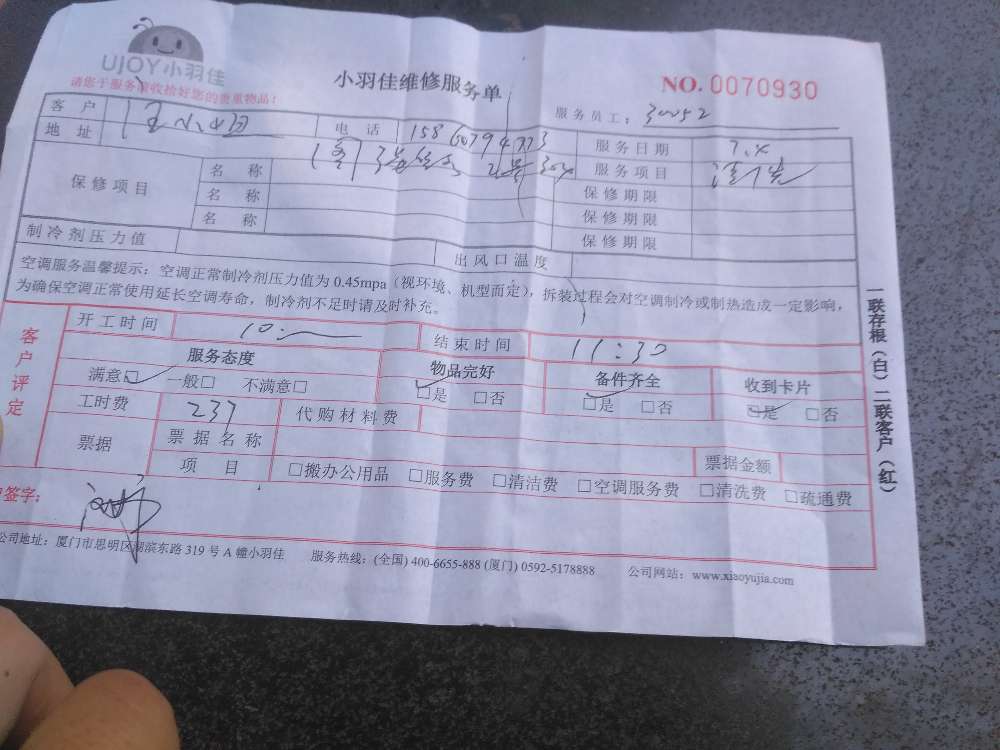 UJOY小羽佳
请您于服务前收拾好您的贵重物品!
小羽佳维修服务单
NO. 0070930
服务员工: 30052
客 户 电 话 服务日期 7.4
地 址 服务项目 清洗
保修项目 名 称 保修期限
名 称 保修期限
名 称 保修期限
制冷剂压力值 出风口温度
空调服务温馨提示: 空调正常制冷剂压力值为 0.45mpa (视环境、机型而定), 拆装过程会对空调制冷或制热造成一定影响,
为确保空调正常使用延长空调寿命, 制冷剂不足时请及时补充。
客户评定
开工时间 10: 结束时间 11:30
服务态度 物品完好 备件齐全 收到卡片
满意□ 一般□ 不满意□ □是 □否 □是 □否 □是 □否
工时费 237 代购材料费
票据 票 据 名 称 票据金额
项 目 □搬办公用品 □服务费 □清洁费 □空调服务费 □清洗费 □疏通费
签字:
公司地址: 厦门市思明区湖滨东路 319 号 A 幢小羽佳 服务热线: (全国) 400-6655-888 (厦门) 0592-5178888 公司网站: www.xiaoyujia.com
一联存根(白)二联客户(红)